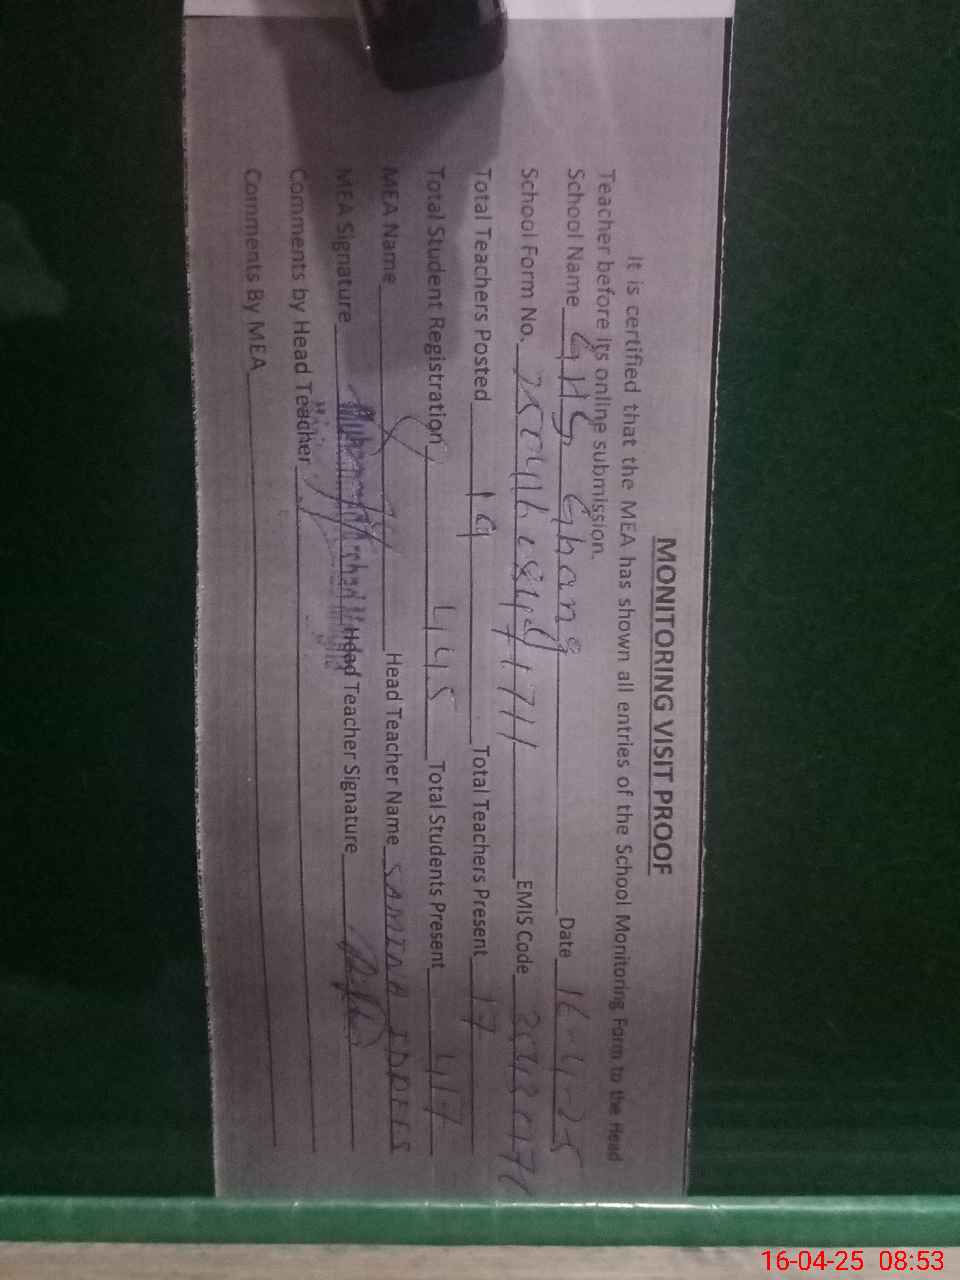 MONITORING VISIT PROOF
It is certified that the MEA has shown all entries of the School Monitoring Form to the Head
Teacher before its online submission.
School Name GHS Ghang Date 16-4-25
School Form No. EMIS Code
Total Teachers Posted 19 Total Teachers Present 17
Total Student Registration 445 Total Students Present 417
MEA Name Head Teacher Name SAMINA IDREES
MEA Signature Head Teacher Signature
Comments by Head Teacher
Comments By MEA
16-04-25 08:53